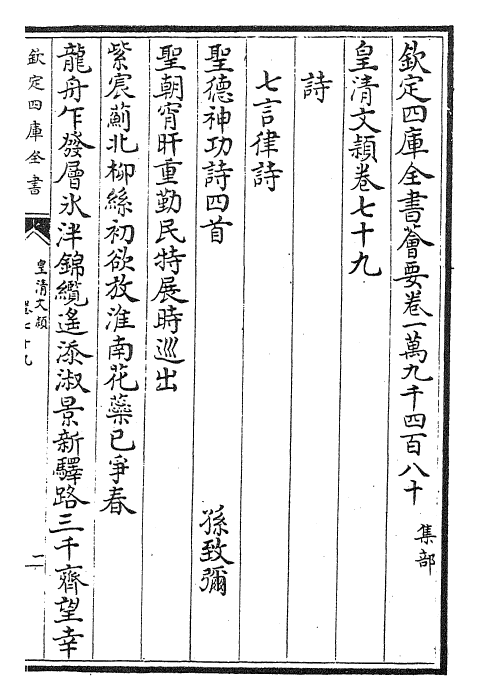 欽定四庫全書薈要卷一萬九千四百八十　集部
皇清文穎卷七十九
詩
七言律詩
聖德神功詩四首　孫致彌
聖朝宵旰重勤民特展時巡出
紫宸薊北柳絲初欲放淮南花藥已爭春
龍舟乍發層氷泮錦纜遙添淑景新驛路三千齊望幸
欽定四庫全書
皇清文穎
卷七十九
二